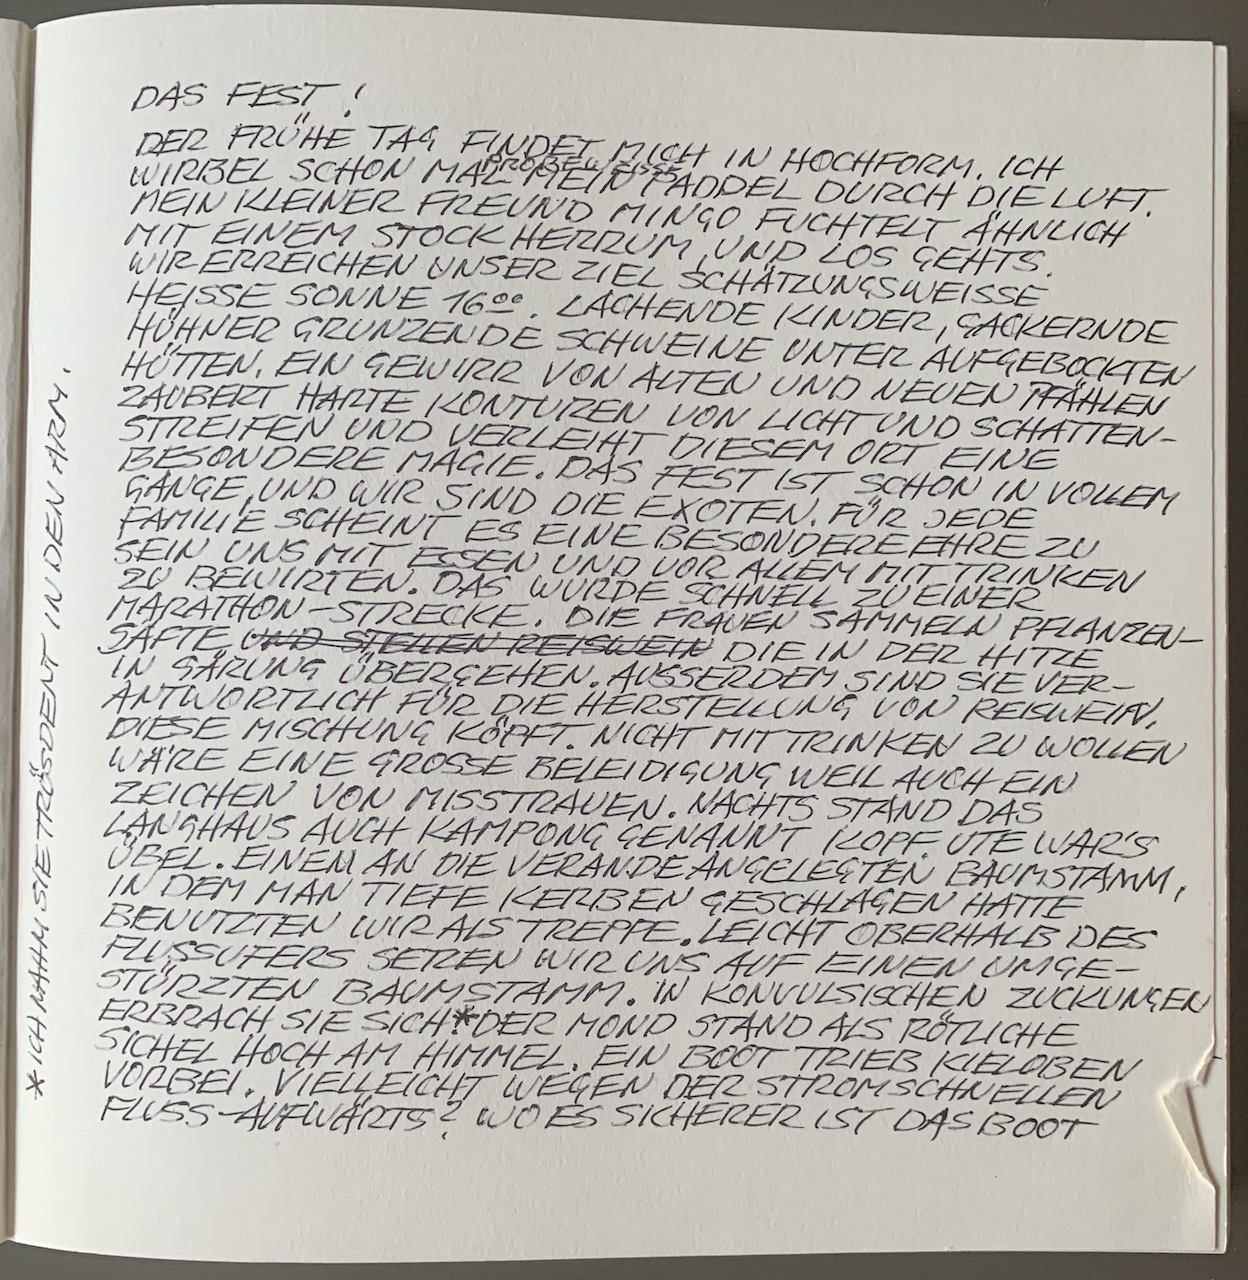 DAS FEST!
DER FRÜHE TAG FINDET MICH IN HOCHFORM. ICH
PROBEWEISSE
WIRBEL SCHON MAL MEIN PADDEL DURCH DIE LUFT.
MEIN KLEINER FREUND MINGO FUCHTELT ÄHNLICH
MIT EINEM STOCK HERRUM, UND LOS GEHTS.
WIR ERREICHEN UNSER ZIEL SCHÄTZUNGSWEISSE
HEISSE SONNE 16⁰⁰. LACHENDE KINDER, GACKERNDE
HÜHNER GRUNZENDE SCHWEINE UNTER AUFGEBOCKTEN
HÜTTEN. EIN GEWIRR VON ALTEN UND NEUEN PFÄHLEN
ZAUBERT HARTE KONTUREN VON LICHT UND SCHATTEN-
STREIFEN UND VERLEIHT DIESEM ORT EINE
BESONDERE MAGIE. DAS FEST IST SCHON IN VOLLEM
GANGE, UND WIR SIND DIE EXOTEN. FÜR JEDE
FAMILIE SCHEINT ES EINE BESONDERE EHRE ZU
SEIN UNS MIT ESSEN UND VOR ALLEM MIT TRINKEN
ZU BEWIRTEN. DAS WURDE SCHNELL ZU EINER
MARATHON-STRECKE. DIE FRAUEN SAMMELN PFLANZEN-
SÄFTE UND STELLEN REISWEIN DIE IN DER HITZE
IN GÄRUNG ÜBERGEHEN. AUSSERDEM SIND SIE VER-
ANTWORTLICH FÜR DIE HERSTELLUNG VON REISWEIN.
DIESE MISCHUNG KÖPFT. NICHT MITTRINKEN ZU WOLLEN
WÄRE EINE GROSSE BELEIDIGUNG WEIL AUCH EIN
ZEICHEN VON MISSTRAUEN. NACHTS STAND DAS
LANGHAUS AUCH KAMPONG GENANNT KOPF. UTE WAR'S
ÜBEL. EINEM AN DIE VERANDE ANGELEGTEN BAUMSTAMM,
IN DEM MAN TIEFE KERBEN GESCHLAGEN HATTE
BENUTZTEN WIR ALS TREPPE. LEICHT OBERHALB DES
FLUSSUFERS SETZEN WIR UNS AUF EINEN UMGE-
STÜRZTEN BAUMSTAMM. IN KONVULSISCHEN ZUCKUNGEN
ERBRACH SIE SICH.* DER MOND STAND ALS RÖTLICHE
SICHEL HOCH AM HIMMEL. EIN BOOT TRIEB KIELOBEN
VORBEI. VIELLEICHT WEGEN DER STROMSCHNELLEN
FLUSS-AUFWÄRTS? WO ES SICHERER IST DAS BOOT
* ICH NAHM SIE TRÖSDENT IN DEN ARM.